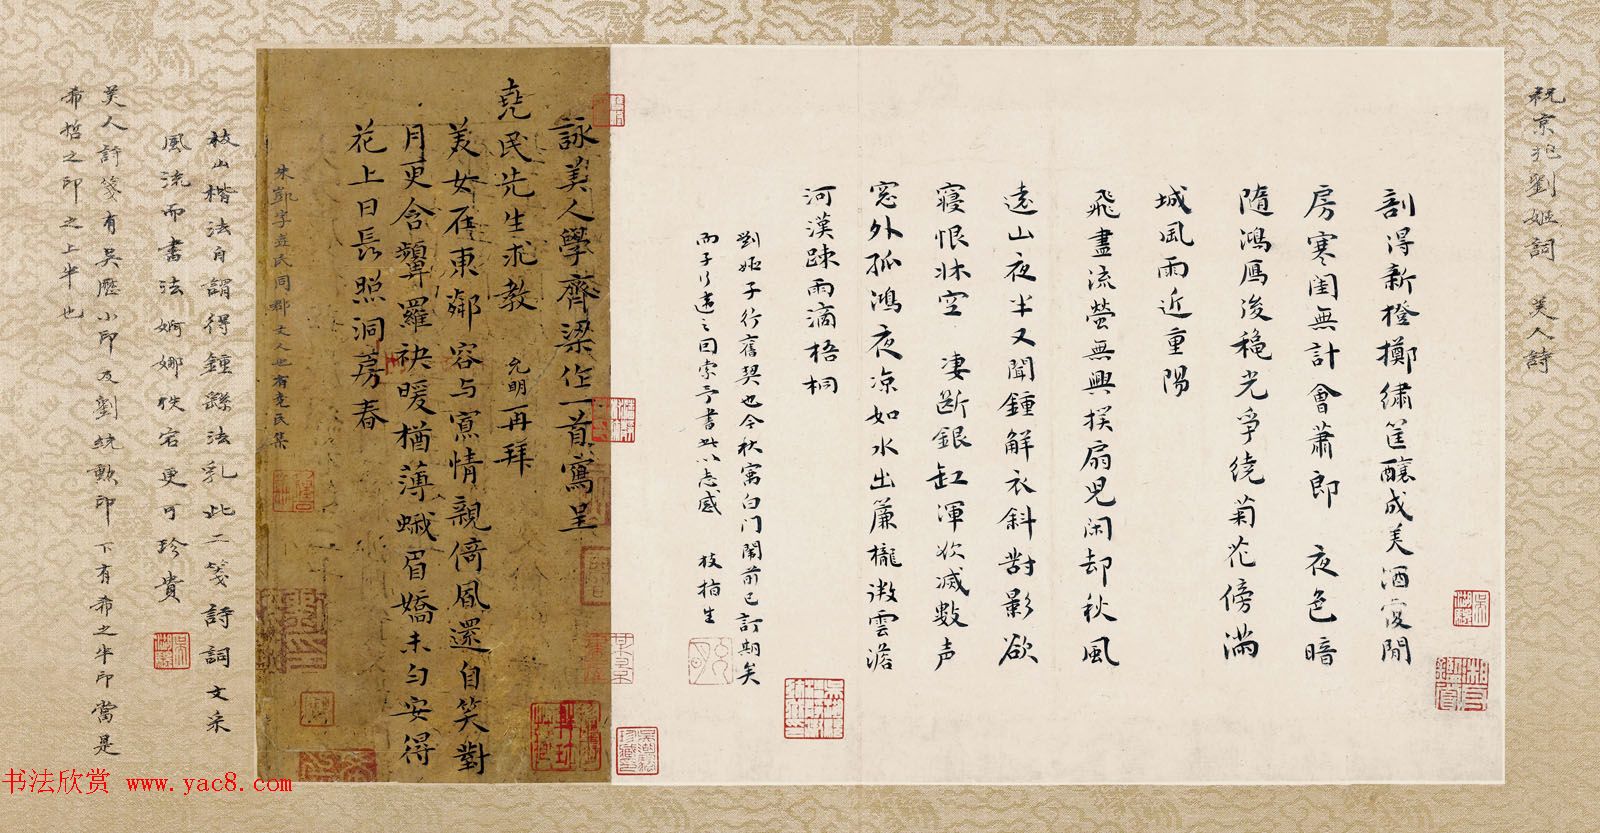 祝京兆劉姬詞 美人詩
剖得新橙擲繡筐釀成美酒復開
房寒閨無計會蕭郎 夜色暗
隨鴻鴈後穐光爭繞菊花傍滿
城風雨近重陽
飛盡流螢無興撲扇兒閑却秋風
遠山夜半又聞鍾解衣斜對影欲
寢恨牀空 凄斷銀缸渾欲滅數声
窓外孤鴻夜凉如水出簾櫳澂雲澹
河漢踈雨滴梧桐
劉姬子行舊契也今秋寓白门闈前已訂期矣
而子行遣之因索予書此以志感 枝指生
詠美人學齊梁作一首寫呈
堯民先生求教 允明再拜
美女在東鄰容与寫情親倚風還自笑對
月更含顰羅袂暖猶薄蛾眉嬌未勻安得
花上日長照洞房春
朱凱字堯民同郡文人也有堯民集
枝山楷法自謂得鍾繇法乳此二箋詩詞文采
風流而書法婀娜佚宕更可珍貴
美人詩箋有吳歷小印及劉統勲印下有希之半印當是
希哲之印之上半也
书法欣赏 www.yac8.com